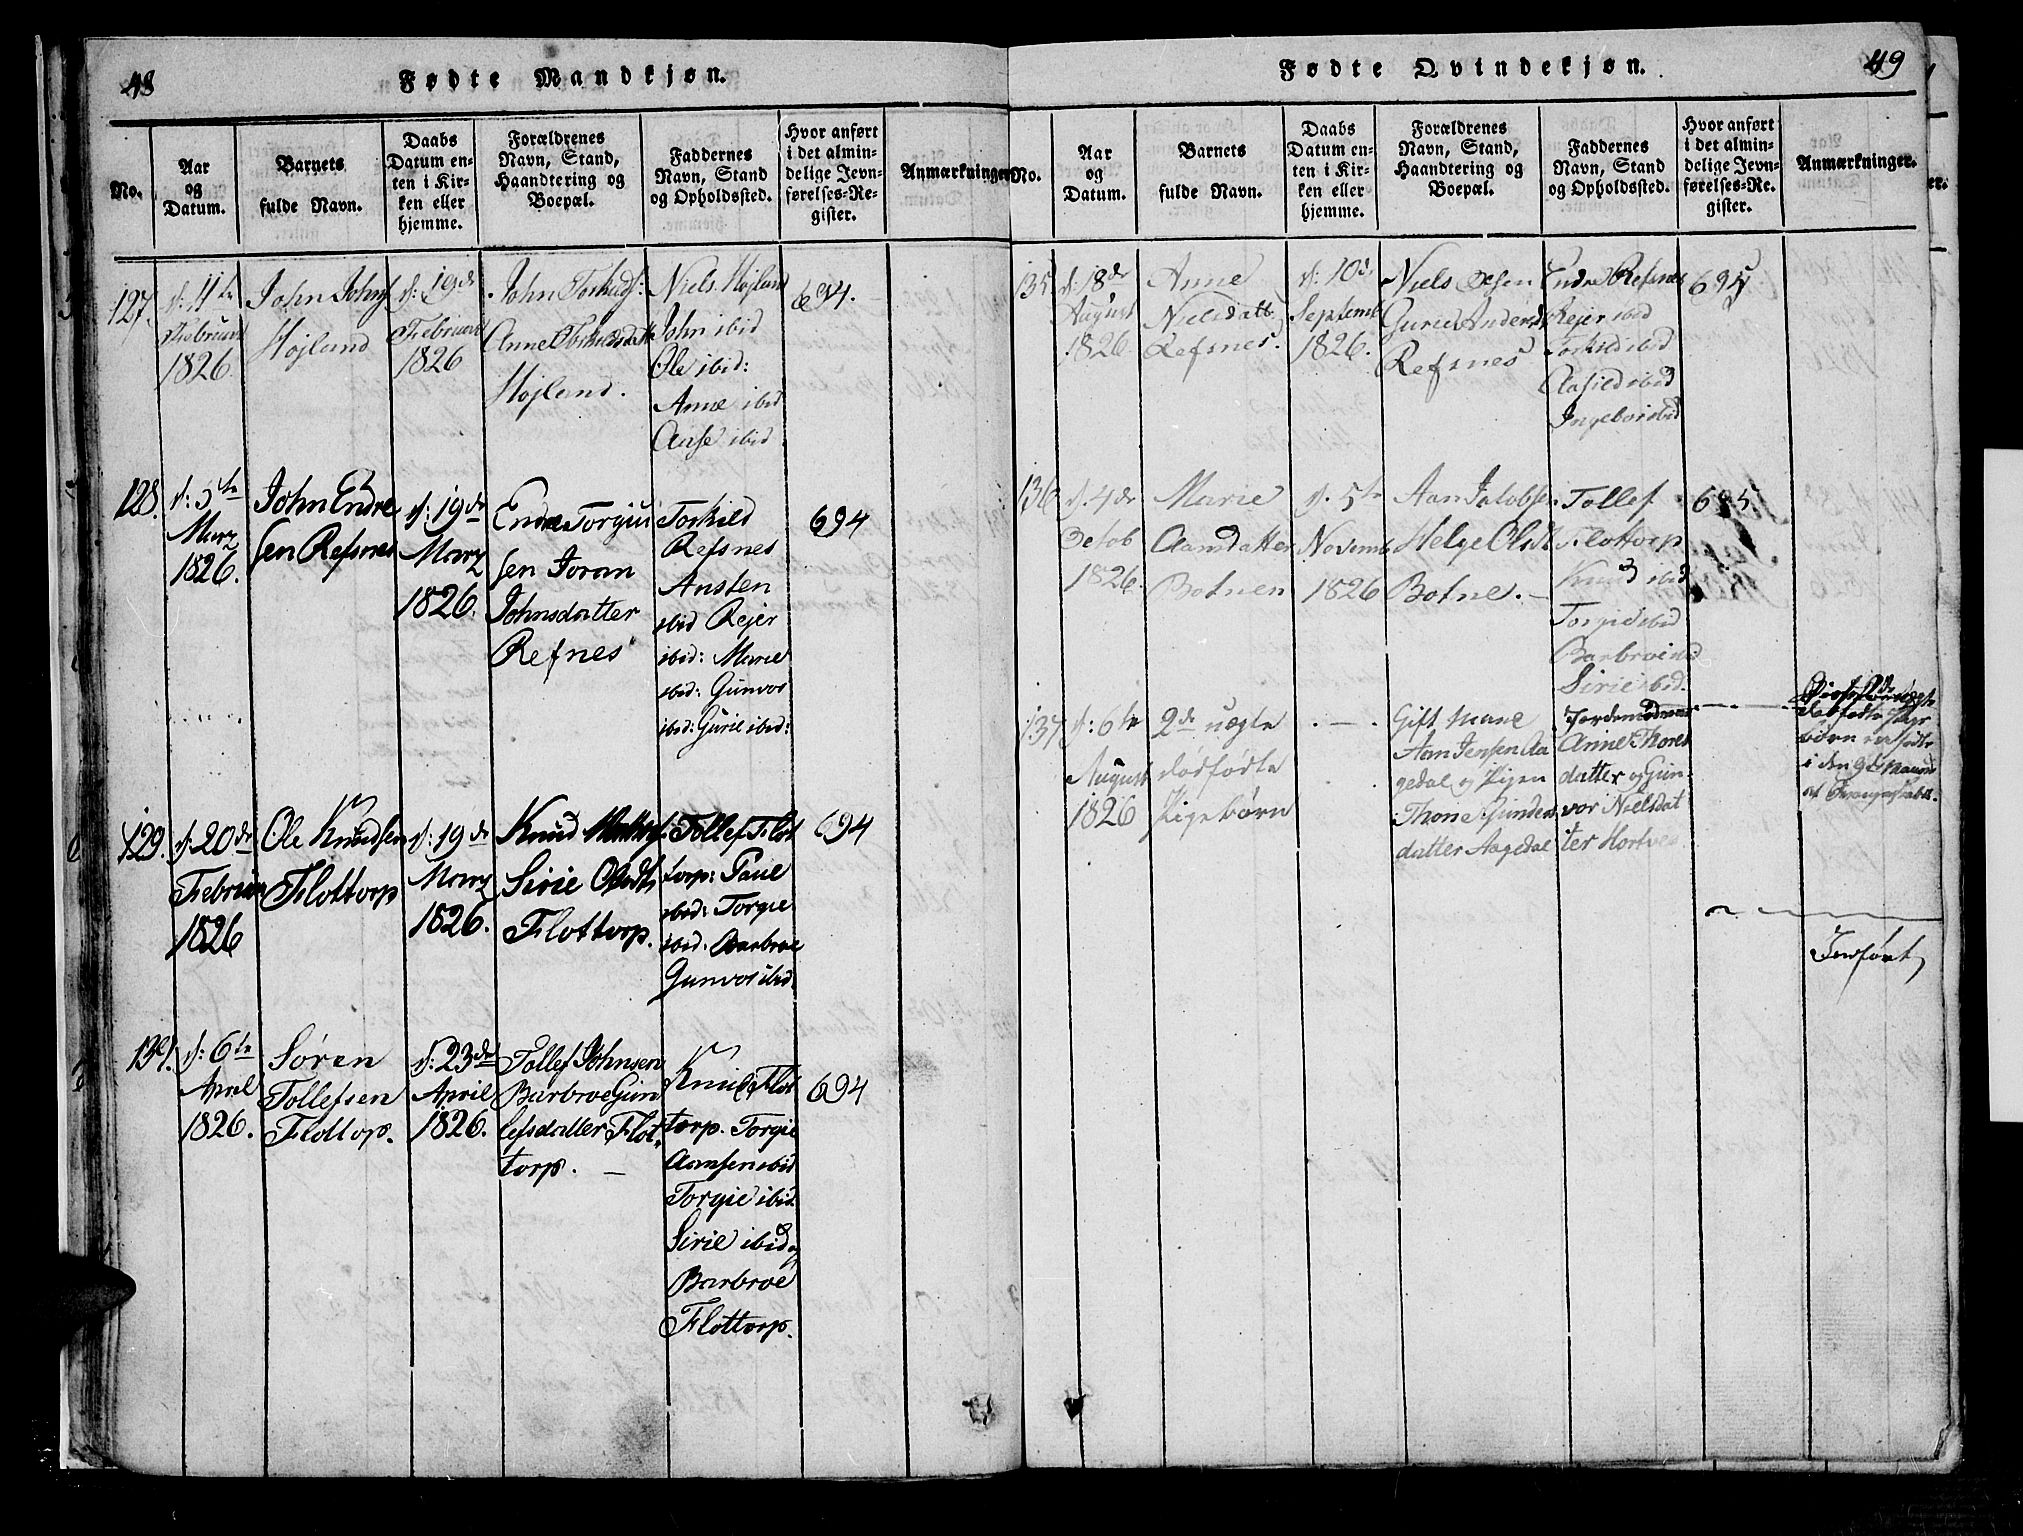 48
Fødte Mandkjøn.
No.
Aar
og
Datum.
Barnets
fulde Navn.
Daabs
Datum en-
ten i Kir-
ken eller
hjemme.
Forældrenes
Navn, Stand,
Haandtering og
Boepæl.
Faddernes
Navn, Stand
og Opholdssted.
Hvor anført
i det almin-
delige Jevn-
førelses-Re-
gister.
Anmærkninger.
127.
d: 11te
Februari
1826.
John Johns
Højland
d: 19de
Februari
1826
John Torkilds:
Anne Torkildsdatte
Højland.
Niels Højland
John ibid
Ole ibid:
Anne ibid
Aase ibid
694.
128.
d: 5te
Marz
1826.
John Endre
sen Refsnes
d: 19de
Marz
1826.
Endre Torgius
sen Joran
Johnsdatter
Refnes
Torkild
Refsnes
Ansten
ibid Rejer
ibid: Marie
ibid: Gunvor
ibid: Gurie ibid:
694
129.
d: 20de
Februar
1826
Ole Knudsen
Flottorp
d: 19de
Marz
1826.
Knud
Sirie Olsdt
Flottorp.
Tollef Flot
torp: Paul
ibid: Torgie
ibid: Barbroe
Gunvor ibid.
694
130.
d: 6te
April
1826.
Søren
Tollefsen
Flottorp.
d: 23de
April
1826.
Tollef Johnsen
Barbroe Gun
lefsdatter Flot
torp. —
Knud Flot
torp. Torgie
Aansen ibid
Torgie ibid
Sirie ibid og
Barbroe
Flottorp.
694
49
Fødte Qvindekjøn.
No.
Aar
og
Datum.
Barnets
fulde Navn.
Daabs
Datum en-
ten i Kir-
ken eller
hjemme.
Forældrenes
Navn, Stand,
Haandtering og
Boepæl.
Faddernes
Navn, Stand
og Opholdssted.
Hvor anført
i det almin-
delige Jevn-
førelses-Re-
gister.
Anmærkninger.
135
d: 18de
August
1826.
Anne
Nielsdatt
Refsnes.
d: 10de
Septemb
1826.
Niels Olsen
Gurie Andersd
Refsnes
Endre Refsnes
Rejer ibid
Torkild ibid
Aasild ibid
Ingebor ibid
695
136
d. 4de
Octob
1826.
Marie
Aansdatter
Botnen
d. 5te
Novemb
1826
Aan Jakobsen
Helge Olsdt
Botne. —
Tollef
Flottorp
Knud ibid
Torgie ibid
Barbroe ibid
Sirie ibid.
695
137
d: 6te
August
1826
2de uægte
dødfødte
Pigebørn
Gift Mand
Aan Jensen Aa
gedal og Pigen
Thone Gunders
datter Aagedal
Jordemoderen
Anne Thores
datter og Gun
vor Nielsdat
ter Hortve
dødfødte Pige
børn er fødte
i den 9de Maaned
Indført